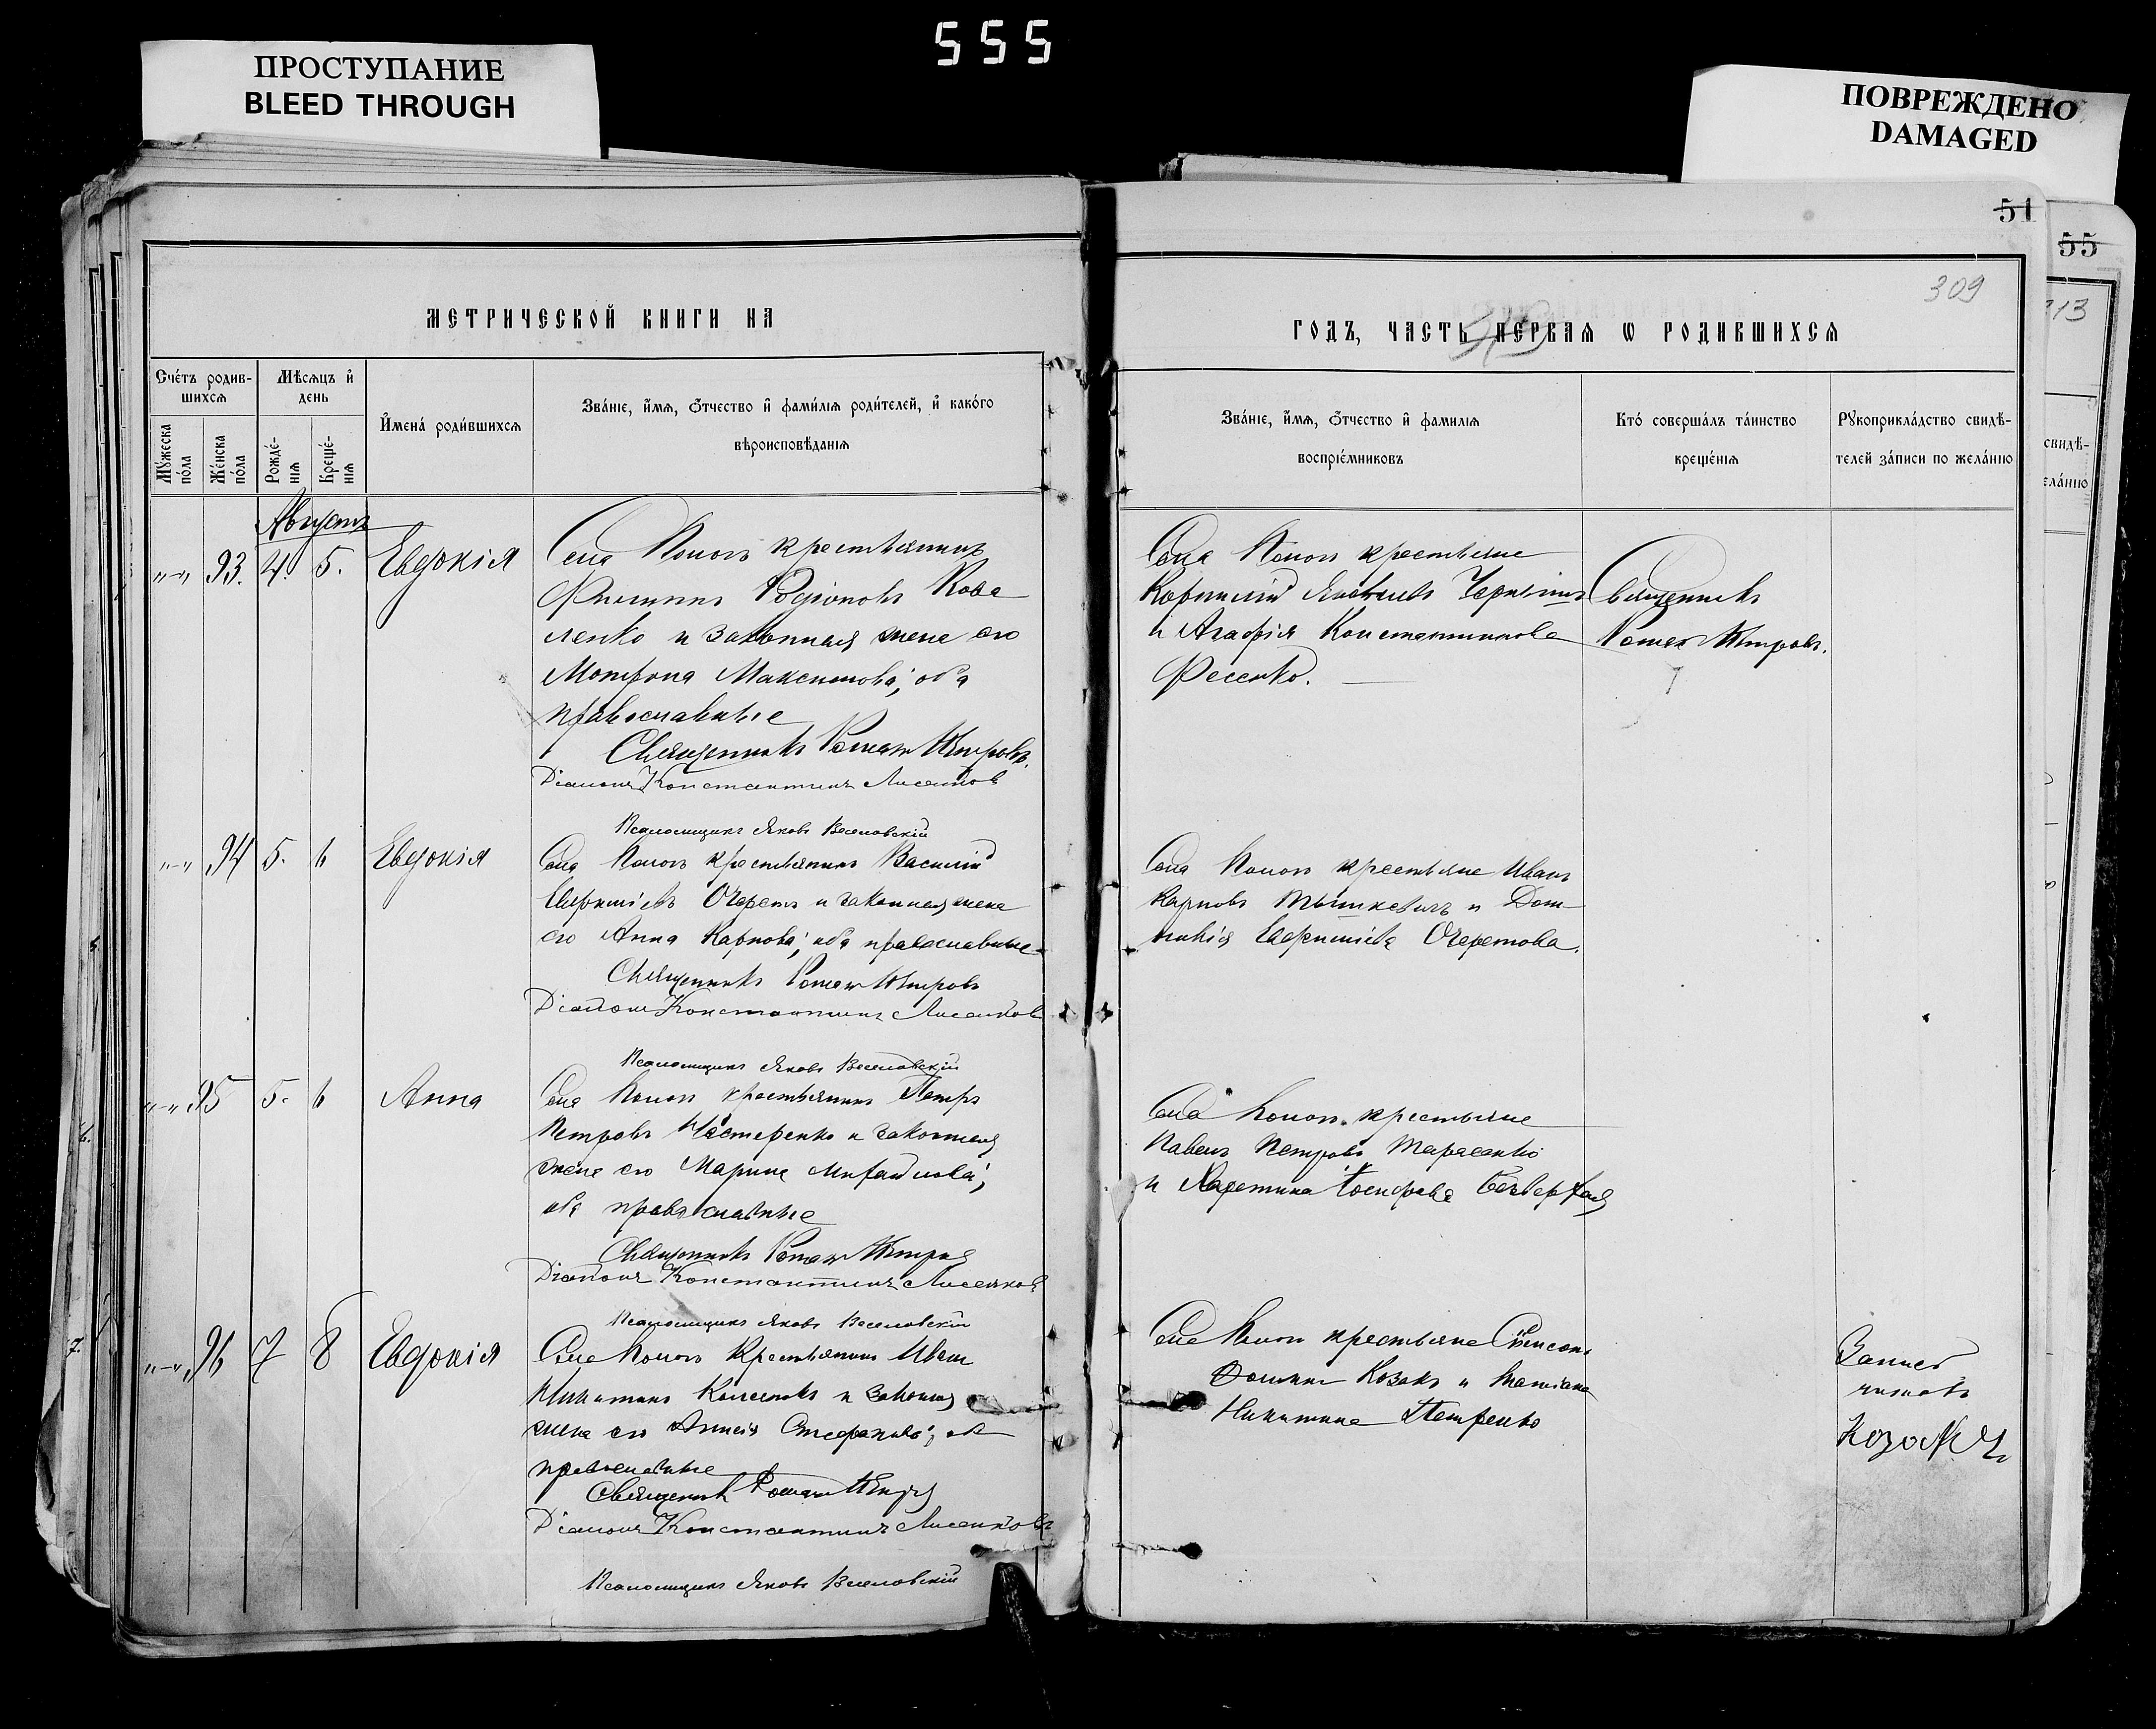 555
ПРОСТУПАНИЕ
BLEED THROUGH
ПОВРЕЖДЕНО
DAMAGED
51
55
309
313
МЕТРИЧЕСКОЙ КНИГИ НА
ГОДЪ, ЧАСТЬ ПЕРВАЯ Ѡ РОДИВШИХСЯ
Счетъ родив-
шихся
Мѣсяцъ и
день
Мужеска
пола
Женска
пола
Рожде-
нія
Креще-
нія
Имена родившихся
Званіе, имя, отчество и фамилія родителей, и какого
вѣроисповѣданія
Званіе, имя, отчество и фамилія
воспріемниковъ
Кто совершалъ таинство
крещенія
Рукоприкладство свидѣ-
телей записи по желанію
свидѣ-
еланію
Августъ
93. 4. 5. Евдокія
Села Попол крестьянинъ
Филиппъ Родіоновъ Кова
ленко и законная жена его
Мотрона Максимова; оба
православные
Священникъ Роман Петровъ.
Діаконъ Константинъ Лисенков
Псаломщикъ Яковъ Веселовскій
Села крестьяне
Корнилій Яковлевъ
и Агафія Константинова
Фесенко.
Священникъ
Роман Петровъ.
94 5. 6 Евдокія
Села крестьянинъ Василій
Евфиміевъ Очеретъ и законная жена
его Анна Карпова; оба православные
Священникъ Роман Петровъ
Діаконъ Константинъ Лисенков
Псаломщикъ Яковъ Веселовскій
Села крестьяне Иванъ
Карповъ Тышкевичъ и Дом
никія Евфиміева Очеретова.
95 5. 6 Анна
Села крестьянинъ Петръ
Петровъ Нестеренко и законная
жена его Марина Михайлова;
оба православные
Священникъ Роман
Діаконъ Константинъ Лисенков
Псаломщикъ Яковъ Веселовскій
Села крестьяне
Павелъ Петровъ Тарасенко
и Іосифова
96 7 8 Евдокія
Села крестьянинъ Иван
Никитинъ и законная
жена его Стефанова; оба
православные
Священникъ Роман
Діаконъ Константинъ Лисенковъ
Псаломщикъ Яковъ Веселовскій
Села крестьяне
Фоминъ Козакъ и
Никитина Петренко
Козакъ